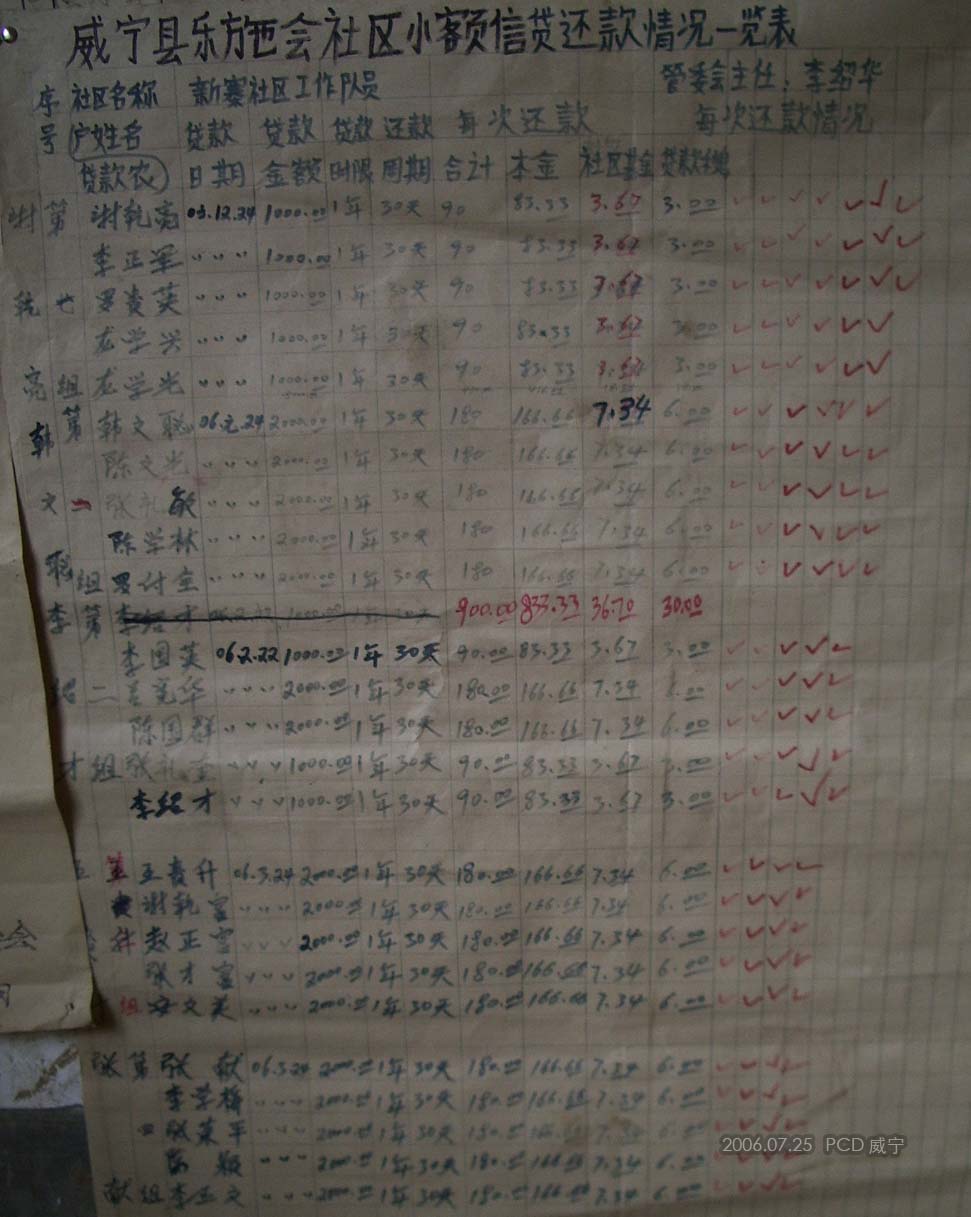 威宁县乐施会社区小额信贷还款情况一览表
序 社区名称 新寨社区工作队员 管委会主任：李绍华
号 户姓名 贷款 贷款 贷款 还款 每次还款 每次还款情况
贷款农 日期 金额 时限 周期 合计 本金 社区基金
谢 第 谢乾亮 05.12.24 1000.00 1年 30天 90 83.33 3.67 3.00 ✓ ✓ ✓ ✓ ✓ ✓ ✓
李正军 〃 〃 〃 1000.00 1年 30天 90 83.33 3.67 3.00 ✓ ✓ ✓ ✓ ✓ ✓ ✓
七 罗贵英 〃 〃 〃 1000.00 1年 30天 90 83.33 3.67 3.00 ✓ ✓ ✓ ✓ ✓ ✓ ✓
龙学兴 〃 〃 〃 1000.00 1年 30天 90 83.33 3.67 3.00 ✓ ✓ ✓ ✓ ✓ ✓
亮 组 龙学光 〃 〃 〃 1000.00 1年 30天 90 83.33 3.67 3.00 ✓ ✓ ✓ ✓ ✓ ✓
韩 第 韩文聪 06.元.24 2000.00 1年 30天 180 166.66 7.34 6.00 ✓ ✓ ✓ ✓ ✓ ✓
陈文光 〃 〃 〃 2000.00 1年 30天 180 166.66 7.34 6.00 ✓ ✓ ✓ ✓ ✓ ✓
文 一 张礼敏 〃 〃 〃 2000.00 1年 30天 180 166.66 7.34 6.00 ✓ ✓ ✓ ✓ ✓ ✓
陈学林 〃 〃 〃 2000.00 1年 30天 180 166.66 7.34 6.00 ✓ ✓ ✓ ✓ ✓ ✓
聪 组 罗付 〃 〃 〃 2000.00 1年 30天 180 166.66 7.34 6.00 ✓ ✓ ✓ ✓ ✓ ✓
李 第 李绍才 1000.00 1年 30天 900.00 833.33 36.70 30.00
李国英 06.2.22 1000.00 1年 30天 90.00 83.33 3.67 3.00 ✓ ✓ ✓ ✓ ✓
绍 二 华 〃 〃 〃 2000.00 1年 30天 180.00 166.66 7.34 6.00 ✓ ✓ ✓ ✓ ✓
陈国群 〃 〃 〃 2000.00 1年 30天 180.00 166.66 7.34 6.00 ✓ ✓ ✓ ✓ ✓
才 组 张礼 〃 〃 〃 1000.00 1年 30天 90.00 83.33 3.67 3.00 ✓ ✓ ✓ ✓ ✓
李绍才 〃 〃 〃 1000.00 1年 30天 90.00 83.33 3.67 3.00 ✓ ✓ ✓ ✓ ✓
王 第 王贵升 06.3.24 2000.00 1年 30天 180.00 166.66 7.34 6.00 ✓ ✓ ✓ ✓
谢乾富 〃 〃 〃 2000.00 1年 30天 180.00 166.66 7.34 6.00 ✓ ✓ ✓ ✓
赵正富 〃 〃 〃 2000.00 1年 30天 180.00 166.66 7.34 6.00 ✓ ✓ ✓ ✓
张才富 〃 〃 〃 2000.00 1年 30天 180.00 166.66 7.34 6.00 ✓ ✓ ✓ ✓
组 安文英 〃 〃 〃 2000.00 1年 30天 180.00 166.66 7.34 6.00 ✓ ✓ ✓ ✓
张 第 张献 06.3.24 2000.00 1年 30天 180.00 166.66 7.34 6.00 ✓ ✓ ✓ ✓
李学梅 〃 〃 〃 2000.00 1年 30天 180.00 166.66 7.34 6.00 ✓ ✓ ✓ ✓
张荣平 〃 〃 〃 2000.00 1年 30天 180.00 166.66 7.34 6.00 ✓ ✓ ✓ ✓
颖 〃 〃 〃 2000.00 1年 30天 180.00 166.66 7.34 6.00 ✓ ✓ ✓ ✓
献 组 李正文 〃 〃 〃 2000.00 1年 30天 180.00 166.66 7.34 6.00 ✓ ✓ ✓ ✓
会
2006.07.25 PCD 威宁